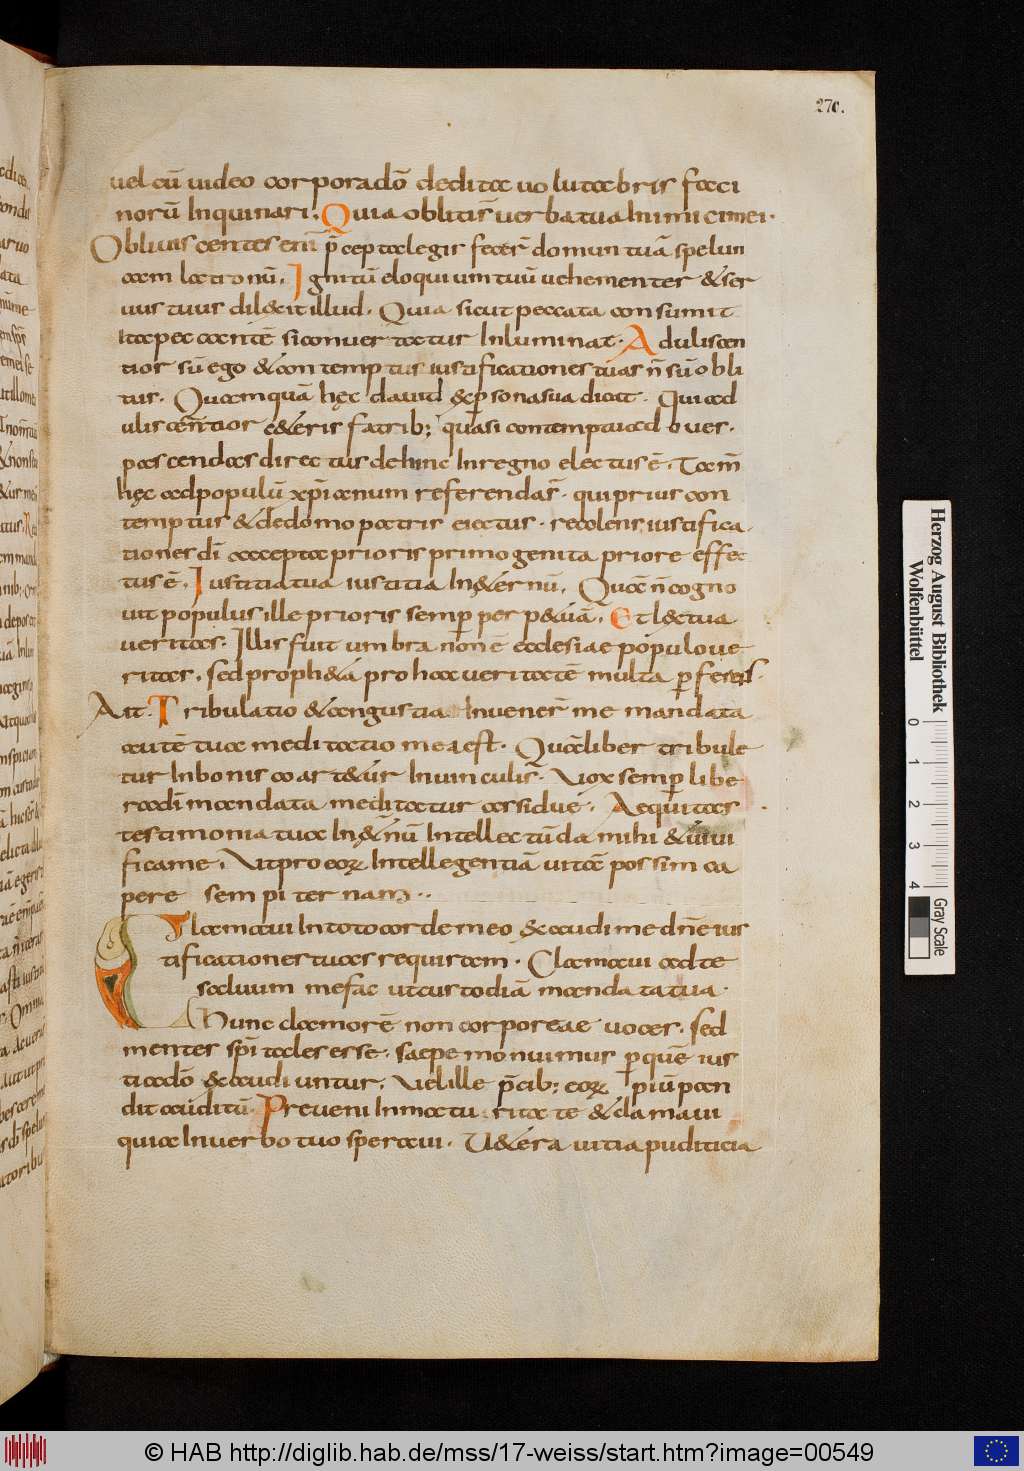 270.
uel cū uideo corpora dō dedita uolutabris faci
norū Inquinari. Quia obliti s̄ uerba tua Inimici mei.
Obliuiscentes enī p̄cepta legis fecer̄ domum tuā spelun
cam latronū. Ignitū eloquium tuū uehementer & ser
uus tuus dil&it illud. Quia sicut peccata consumit
Ita peccantē si conuertatur Inluminat. Aduliscen
tior sū ego & contemptus iustificationes tuas n̄ sū obli
tus. Quamquā hęc dauid & ꝑsona sua dicat. Qui ad
uliscentior c&eris fratrib; quasi contemptus ad oues
pascendas directus dehinc In regno electus ē. Tam̄
hęc ad populū xp̄ianum referenda s̄. qui prius con
temptus & de domo patris eiectus. recolens iustifica
tiones dī accepta prioris primogenita priore effec
tus ē. Iustitia tua iustitia In&ernū. Quā n̄ cogno
uit populus ille prioris semꝑ per p&iā. Et l&tua
ueritas. Illis fuit umbra. non ē ecclesiae populo ue
ritas. sed proph&a pro hac ueritatē multa ꝑferens.
Ait. Tribulatio & angustia Inuener̄ me mandata
autē tua meditatio mea est. Quāliber tribule
tur In bonis coart&ur In uinculis. Vox semꝑ libe
ra dī mandata meditatur assidue. Aequitas
testimonia tua In&nū Intellectū da mihi & uiui
fica me. Vt pro eoꝝ Intellegentiā uitā possim ca
pere sempiternam..
Clamaui In toto corde meo & audi me dn̄e ius
tificationes tuas requiram. Clamaui ad te
saluum me fac ut custodiā mandata tua.
Hunc clamorē non corporeae uoces. sed
mentes sp̄itales esse. saepe monuimus ꝑ quē ius
ti ad dō & audiuntur. Vel ille p̄cib; eoꝝ piū pan
dit auditū. Preueni In maturitate & clamaui
quia In uerbo tuo speraui. V&era uitia puditicia
Herzog August Bibliothek
Wolfenbüttel
0 1 2 3 4
Gray Scale
© HAB http://diglib.hab.de/mss/17-weiss/start.htm?image=00549